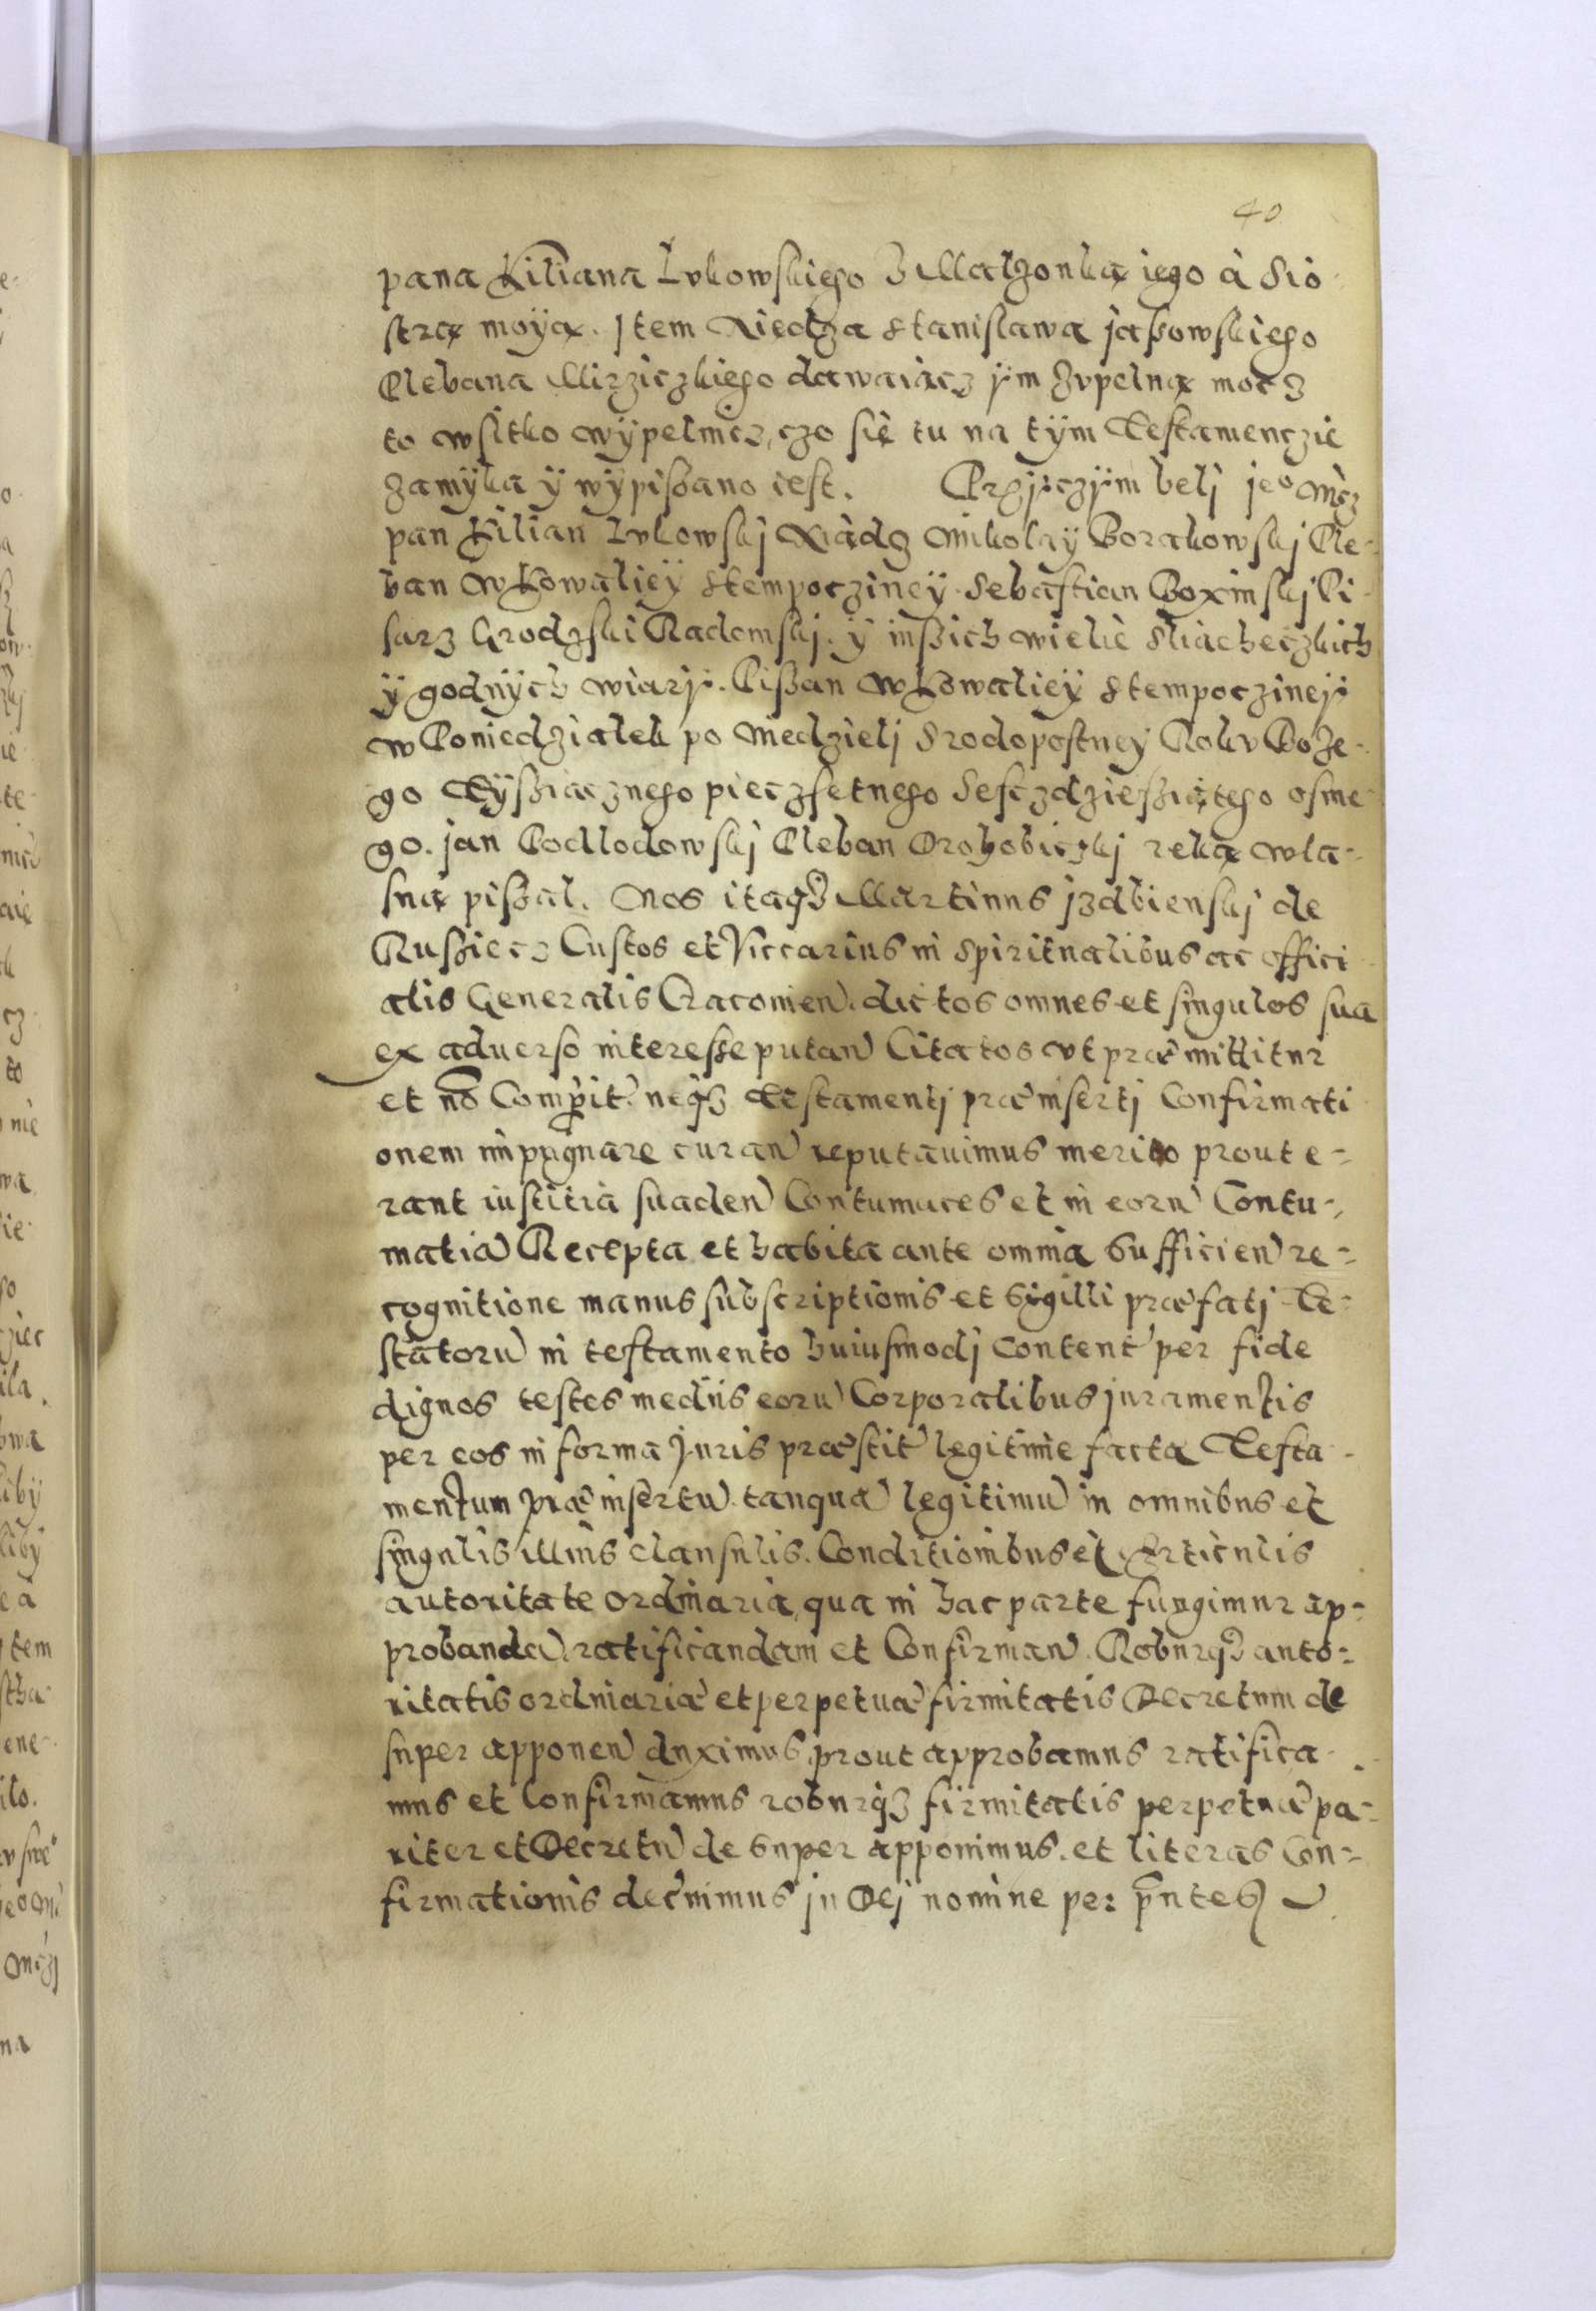 40
pana Kiliana Lukowskiego z Małzonką iego à Sio
strą moyą. Jtem Xiedza Stanislawa jaßowskiego
Plebana Mirzickiego dawaiącz ÿm zvpelną mocz
to wsitko wÿpelnicz, czo się tu na tÿm Testamenczie
zamÿka ÿ wÿpißano iest. Przÿczÿm belj jeo Mcz
pan Kilian Lvkowskj Xiądz Mikolaÿ Borakowskj Ple-
ban W Kowalieÿ Stempoczineÿ Sebastian Boxinskj Pi
sarz Grodzski Radomskj. ÿ inßich wielie Sliacheczkich
ÿ godnÿch wiarÿ. Pißan W Kowalieÿ Stempoczineÿ
w Poniedzialek po Niedzielj Srodopostney Rokv Boże-
go Tÿßiącznego pieczsetnego Sesczdzießiątego osme-
go. jan Podlodowskj Pleban Drohobiczkj reką wla-
sną pißal. Nos itaq3 Martinus jzdbienskj de
Rußiecz Custos et Viccarius in Spiritualibus ac offici
alis Generalis Cracouien. dictos omnes et singulos sua
ex aduerso interesse putan Citatos vt præmittitur
et no Comprit. neq3 Testamentj præinsertj Confirmati
onem impugnare curan reputauimus merito prout e-
rant iustitia suaden Contumaces et in eoru Contu-
matia Recepta et habita ante omnia Sufficien re-
cognitione manus subscriptionis et Sigilli præfatj Te-
statoru in testamento huiusmodj Content per fide
dignos testes medijs eoru Corporalibus juramentis
per eos in forma Juris præstit legitime facta Testa
mentum præinsertu tanqua legitimu in omnibus et
singulis illius clausulis. Conditionibus et Articulis
autoritate ordinaria, qua in hac parte fungimur ap-
probanda. ratificandam et Confirman. Roburq3 auto-
ritatis ordinariæ et perpetuæ firmitatis Decretum de
super apponen duximus, prout approbamus ratifica-
mus et Confirmamus roburq3 firmitatis perpetuæ pa-
riter et Decretu de super apponimus. et literas Con-
firmationis decrnimus jn Dej nomine per pntes